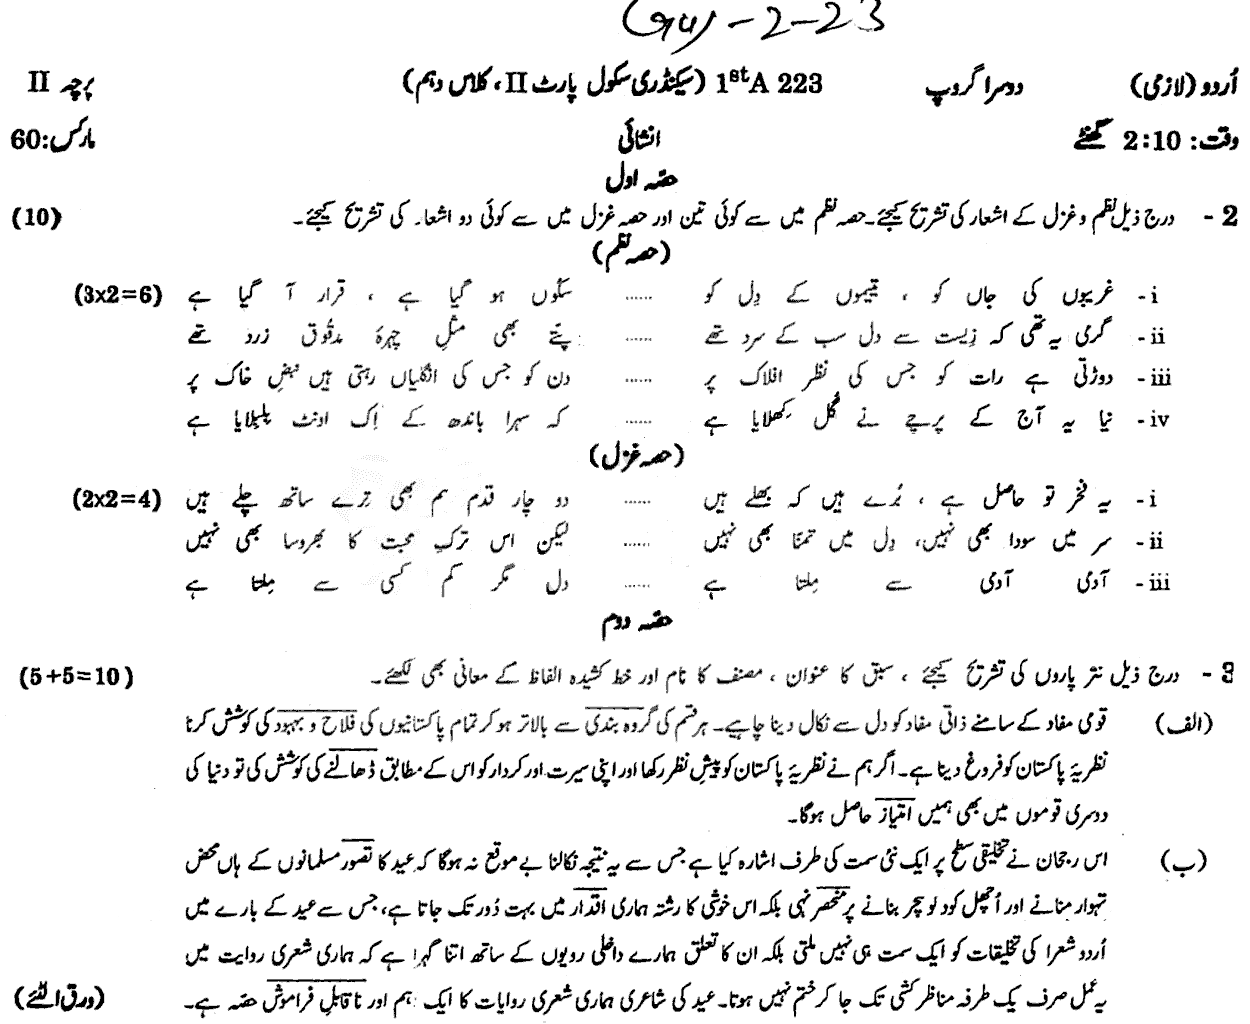 اُردو (لازمی) دوسرا گروپ 1stA 223 (سیکنڈری سکول پارٹ II، کلاس دہم) پرچہ II
وقت: 2:10 گھنٹے انشائی مارکس:60
حصّہ اول
2 - درج ذیل نظم و غزل کے اشعار کی تشریح کیجئے۔ حصہ نظم میں سے کوئی تین اور حصہ غزل میں سے کوئی دو اشعار کی تشریح کیجئے۔ (10)
(حصہ نظم)
i - غریبوں کی جاں کو ، یتیموں کے دِل کو ...... سکُوں ہو گیا ہے ، قرار آ گیا ہے (3x2=6)
ii - گرمی یہ تھی کہ زِیست سے دل سب کے سرد تھے ...... پتے بھی مثلِ چہرۂ مدقُوق زرد تھے
iii - دوڑتی ہے رات کو جس کی نظر افلاک پر ...... دن کو جس کی انگلیاں رہتی ہیں نبضِ خاک پر
iv - نیا یہ آج کے پرچے نے گُل کِھلایا ہے ...... کہ سہرا باندھ کے اِک اونٹ بلبلایا ہے
(حصہ غزل)
i - یہ فخر تو حاصل ہے ، بُرے ہیں کہ بھلے ہیں ...... دو چار قدم ہم بھی تِرے ساتھ چلے ہیں (2x2=4)
ii - سر میں سودا بھی نہیں، دِل میں تمنّا بھی نہیں ...... لیکن اس ترکِ محبت کا بھروسا بھی نہیں
iii - آدمی آدمی سے مِلتا ہے ...... دل مگر کم کسی سے مِلتا ہے
حصّہ دوم
3 - درج ذیل نثر پاروں کی تشریح کیجئے ، سبق کا عنوان ، مصنف کا نام اور خط کشیدہ الفاظ کے معانی بھی لکھئے۔ (5+5=10)
(الف) قومی مفاد کے سامنے ذاتی مفاد کو دل سے نکال دینا چاہیے۔ ہر قسم کی گروہ بندی سے بالاتر ہو کر تمام پاکستانیوں کی فلاح و بہبود کی کوشش کرنا
نظریۂ پاکستان کو فروغ دینا ہے۔ اگر ہم نے نظریۂ پاکستان کو پیشِ نظر رکھا اور اپنی سیرت اور کردار کو اس کے مطابق ڈھالنے کی کوشش کی تو دنیا کی
دوسری قوموں میں بھی ہمیں امتیاز حاصل ہوگا۔
(ب) اس رجحان نے تخلیقی سطح پر ایک نئی سمت کی طرف اشارہ کیا ہے جس سے یہ نتیجہ نکالنا بے موقع نہ ہوگا کہ عید کا تصّور مسلمانوں کے ہاں محض
تہوار منانے اور اُچھل کود لو پر بنانے پر منحصر نہیں بلکہ اس خوشی کا رشتہ ہماری اقدار میں بہت دُور تک جاتا ہے، جس سے عید کے بارے میں
اُردو شعرا کی تخلیقات کو ایک سمت ہی نہیں ملتی بلکہ ان کا تعلق ہمارے داخلی رویوں کے ساتھ اتنا گہرا ہے کہ ہماری شعری روایت میں
یہ عمل صرف یک طرفہ مناظر کشی تک جا کر ختم نہیں ہوتا۔ عید کی شاعری ہماری شعری روایات کا ایک اہم اور ناقابلِ فراموش حصّہ ہے۔ (ورق الٹئے)